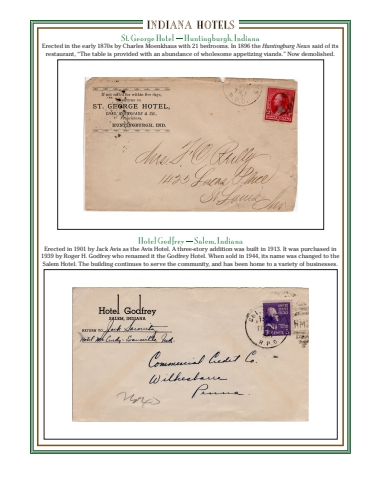 INDIANA HOTELS
St. George Hotel — Huntingburgh, Indiana
Erected in the early 1870s by Charles Moenkhaus with 21 bedrooms. In 1896 the Huntingburg News said of its
restaurant, "The table is provided with an abundance of wholesome appetizing viands." Now demolished.
If not called for within five days,
ST. GEORGE HOTEL,
HUNTINGBURGH, IND.
Mrs. F. O. Reilly
1425 Lucas Place
St Louis
Mo
Hotel Godfrey — Salem, Indiana
Erected in 1901 by Jack Avis as the Avis Hotel. A three-story addition was built in 1913. It was purchased in
1939 by Roger H. Godfrey who renamed it the Godfrey Hotel. When sold in 1944, its name was changed to the
Salem Hotel. The building continues to serve the community, and has been home to a variety of businesses.
Hotel Godfrey
SALEM, INDIANA
RETURN TO Jack
Hotel Mc Curdy - Evansville Ind.
Commercial Credit Co.
Wilkesbarre
Penna.
R.P.O.